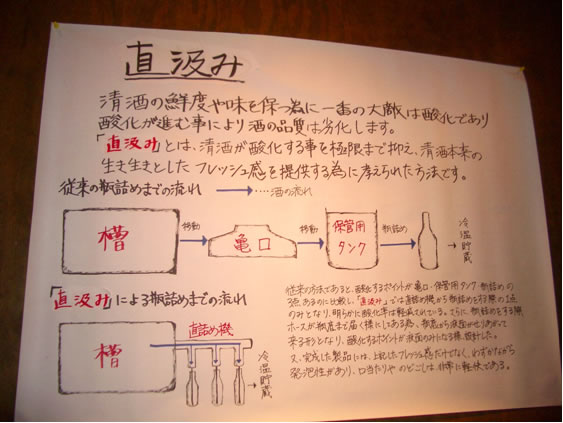 直汲み
清酒の鮮度や味を保つ為に一番の大敵は酸化であり
酸化が進む事により酒の品質は劣化します。
「直汲み」とは、清酒が酸化する事を極限まで抑え、清酒本来の
生き生きとしたフレッシュ感を提供する為に考えられた方法です。
従来の瓶詰めまでの流れ
→‥‥酒の流れ
槽
移動
亀口
移動
保管用
タンク
瓶詰め
冷温貯蔵
「直汲み」による瓶詰めまでの流れ
槽
直詰め機
冷温貯蔵
従来の方法であると、酸化するポイントが亀口・保管用タンク・瓶詰めの
3点あるのに比較し、「直汲み」では直詰め機から瓶詰めをする際の1点
のみとなり、明らかに酸化率は軽減されている。さらに、瓶詰めをする際
ホースが瓶底まで届く様にしてある為、瓶底から液面が上がって
来る形となり、酸化するポイントが液面のみになる様、設計した。
又、完成した製品には、上記したフレッシュ感だけでなく、わずかながら
発泡性があり、口当たりやのどごしは、非常に軽快である。